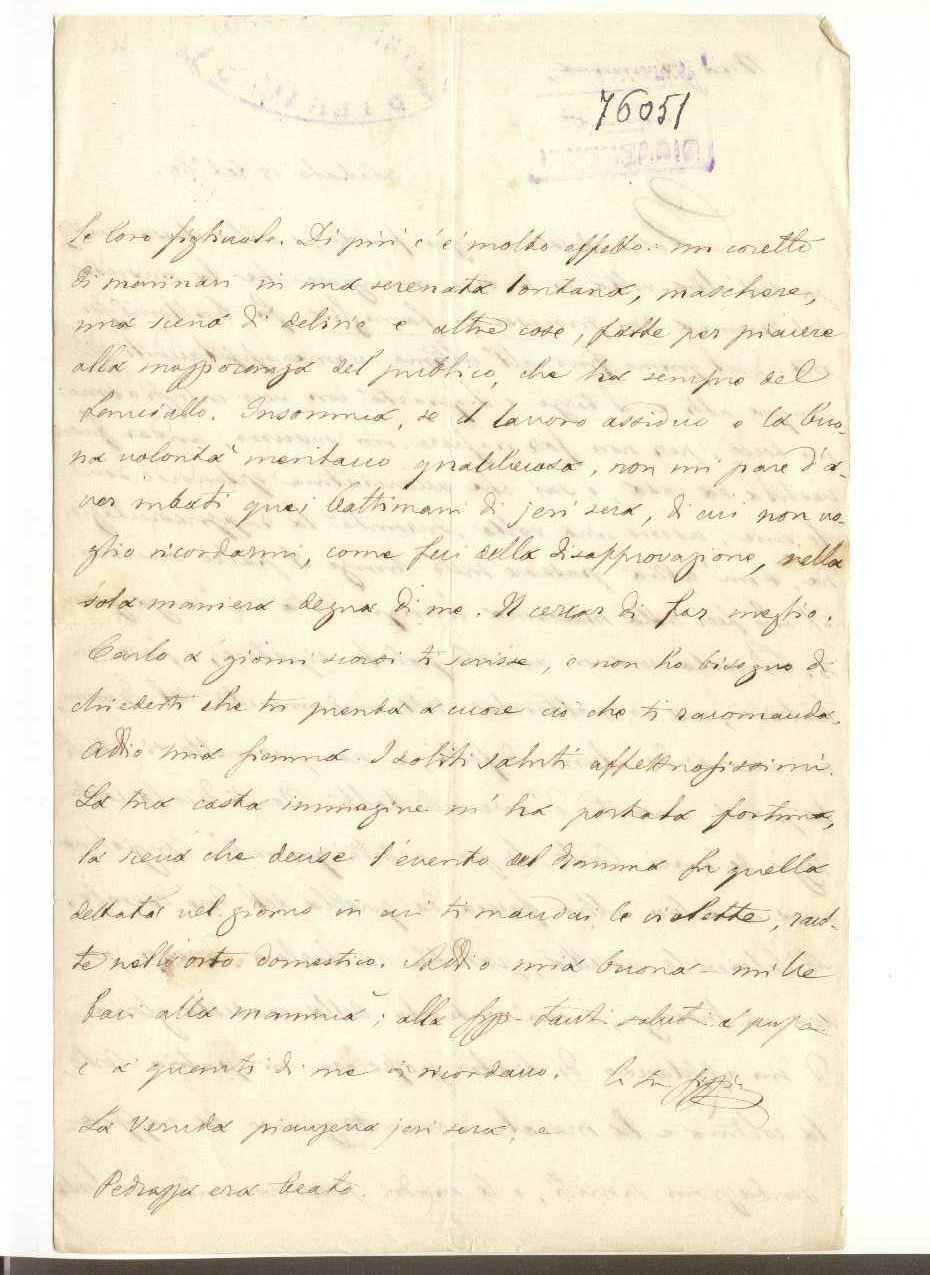 76051
le loro figliuole. Di più c'è molto effetto: un coretto
di marinari in una serenata lontana, maschere,
una scena di delirio e altre cose, fatte per piacere
alla maggioranza del pubblico, che ha sempre del
fanciullo. Insomma, se il lavoro assiduo e la buo-
na volontà meritano qualchecosa, non mi pare d'a-
ver rubati quei battimani di jeri sera, di cui non vo-
glio ricordarmi, come feci della disapprovazione, nella
sola maniera degna di me. Il cercar di far meglio.
Carlo a' giorni scorsi ti scrisse, e non ho bisogno di
chiederti che tu prenda a cuore ciò che ti racomanda.
Addio mia gemma. I soliti saluti affettuosissimi.
La tua casta immagine m'ha portata fortuna,
la scena che decise l'evento del dramma fu quella
dettata nel giorno in cui ti mandai le violette, racol-
te nell'orto domestico. Addio mia buona mille
baci alla mamma; alla tanti saluti a papà
e a quanti di me si ricordano. Il tu
La Veruda piangeva jeri sera, e
Pedrazza era beato.